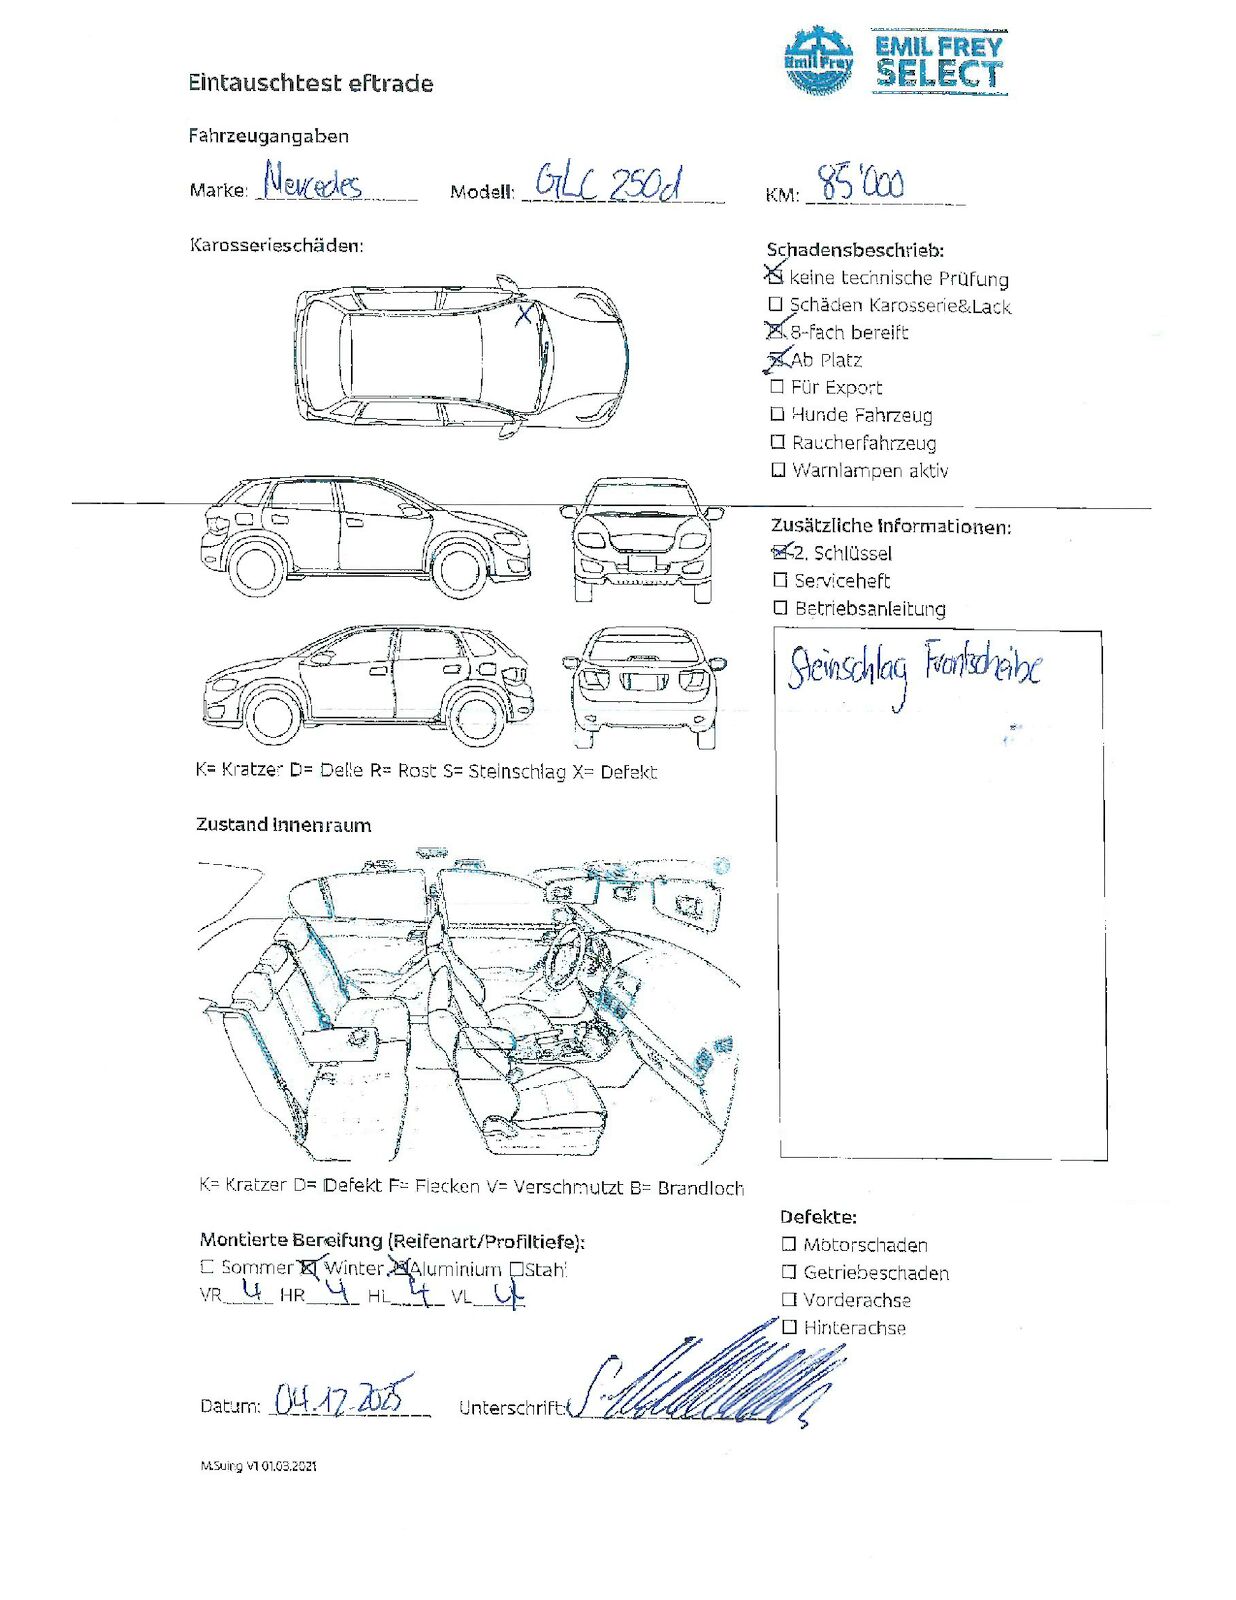 Emil Frey
EMIL FREY
SELECT
Eintauschtest eftrade
Fahrzeugangaben
Marke: Mercedes Modell: GLC 250d KM: 85'000
Karosserieschäden:
X
Schadensbeschrieb:
☒ keine technische Prüfung
☐ Schäden Karosserie&Lack
☒ 8-fach bereift
☒ Ab Platz
☐ Für Export
☐ Hunde Fahrzeug
☐ Raucherfahrzeug
☐ Warnlampen aktiv
Zusätzliche Informationen:
☒ 2. Schlüssel
☐ Serviceheft
☐ Betriebsanleitung
Steinschlag Frontscheibe
K= Kratzer D= Delle R= Rost S= Steinschlag X= Defekt
Zustand Innenraum
K= Kratzer D= Defekt F= Flecken V= Verschmutzt B= Brandloch
Montierte Bereifung (Reifenart/Profiltiefe):
☐ Sommer ☒ Winter ☒ Aluminium ☐ Stahl
VR 4 HR 4 HL 4 VL 4
Defekte:
☐ Motorschaden
☐ Getriebeschaden
☐ Vorderachse
☐ Hinterachse
Datum: 04.12.2025 Unterschrift:
M.Suing V1 01.03.2021